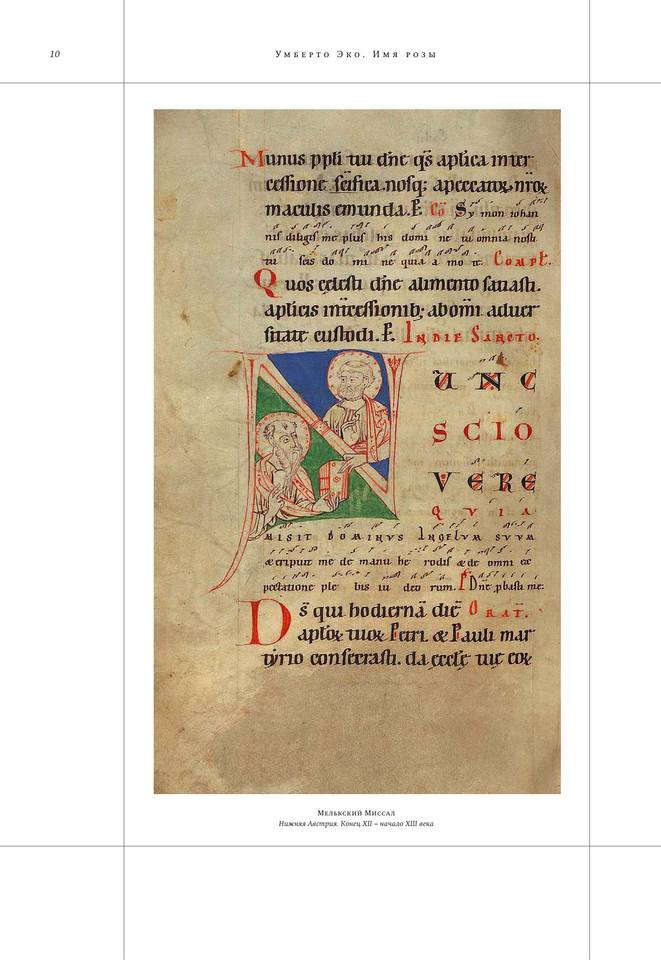 10
Умберто Эко. Имя розы
Munus ppli tui dne qs aplica inter
cessione scifica. nosq; apeccatoꝝ nroꝝ
maculis emunda. P. Cō Symon iohan
nis diligis me plus his domi ne tu omnia nosti
tu scis do mi ne quia a mo te. Compl.
Quos celesti dne alimento satiasti.
aplicis intcessionib; ab omi aduer
sitate custodi. P. In die sancto.
NUNC
SCIO
VERE
QUIA
MISIT DOMINUS ANGELUM SUUM
& eripuit me de manu he rodis & de omni ex
pectatione ple bis iu deo rum. Dne pbasti me.
Ds qui hodiernā diē Orat.
aptoꝝ tuoꝝ Petri & Pauli mar
tyrio consecrasti. da eccle tue eoꝝ
Мелькский Миссал
Нижняя Австрия. Конец XII – начало XIII века